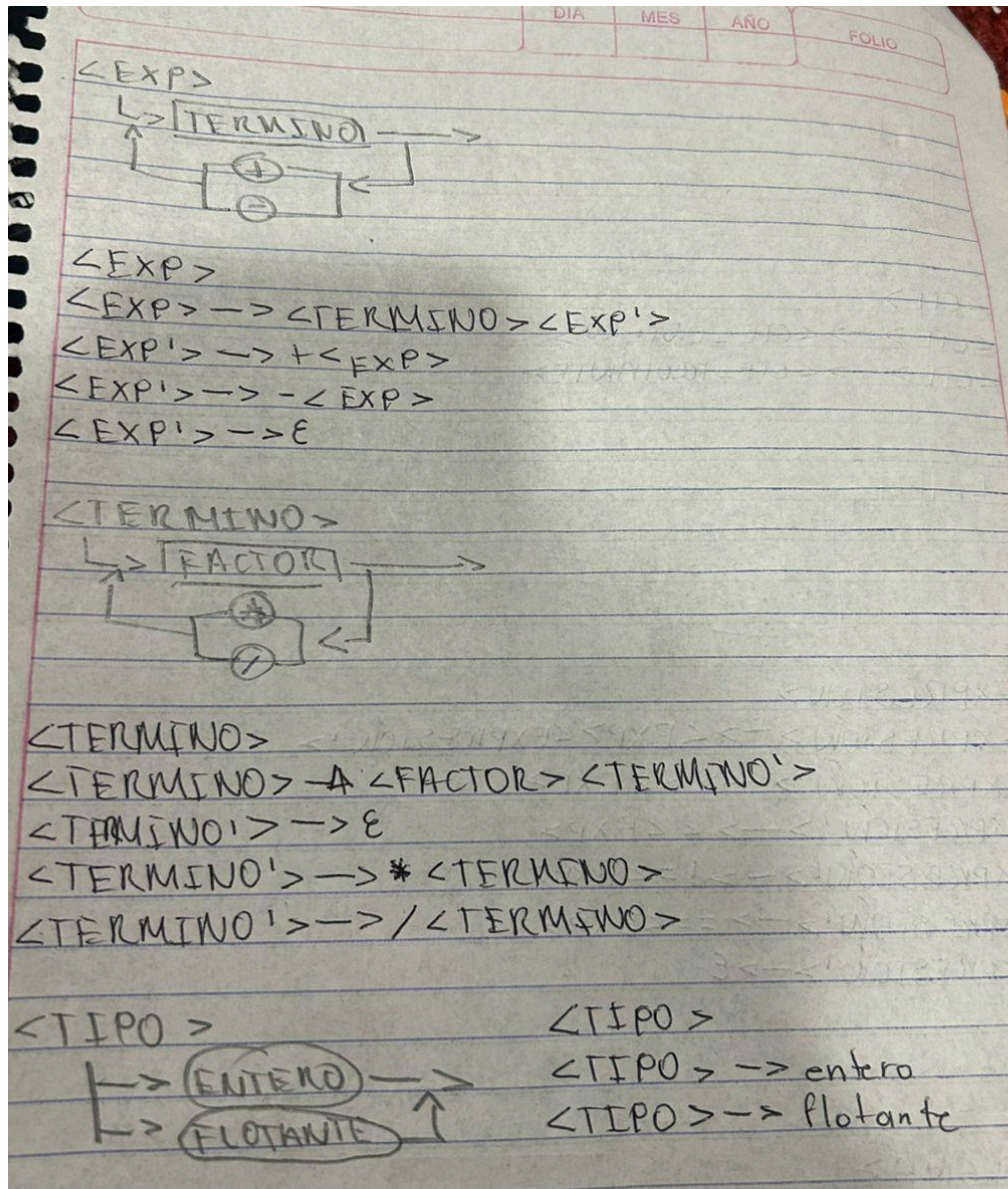 DIA MES AÑO FOLIO
<EXP>
TERMINO
+
-
<EXP>
<EXP> -> <TERMINO> <EXP'>
<EXP'> -> + <EXP>
<EXP'> -> - <EXP>
<EXP'> -> ε
<TERMINO>
FACTOR
*
/
<TERMINO>
<TERMINO> -> <FACTOR> <TERMINO'>
<TERMINO'> -> ε
<TERMINO'> -> * <TERMINO>
<TERMINO'> -> / <TERMINO>
<TIPO>
ENTERO
FLOTANTE
<TIPO>
<TIPO> -> entero
<TIPO> -> flotante